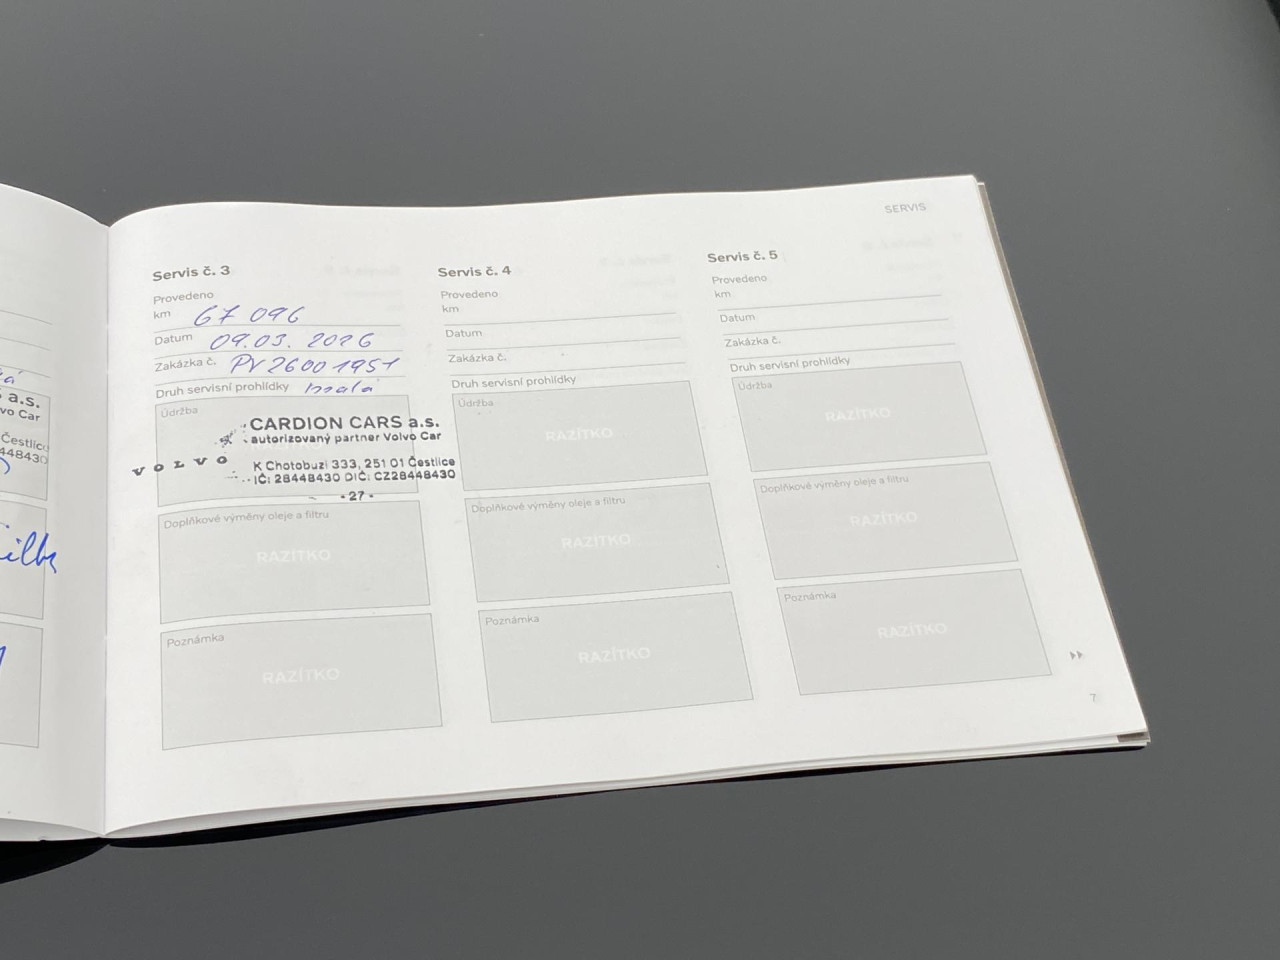 á
a.s.
vo Car
Čestlice
48430
SERVIS
Servis č. 3
Provedeno
km 67 096
Datum 09.03. 2026
Zakázka č. PV26001951
Druh servisní prohlídky malá
Údržba
CARDION CARS a.s.
autorizovaný partner Volvo Car
VOLVO
K Chotobuzi 333, 251 01 Čestlice
IČ: 28448430 DIČ: CZ28448430
- 27 -
Doplňkové výměny oleje a filtru
RAZÍTKO
Poznámka
RAZÍTKO
Servis č. 4
Provedeno
km
Datum
Zakázka č.
Druh servisní prohlídky
Údržba
RAZÍTKO
Doplňkové výměny oleje a filtru
RAZÍTKO
Poznámka
RAZÍTKO
Servis č. 5
Provedeno
km
Datum
Zakázka č.
Druh servisní prohlídky
Údržba
RAZÍTKO
Doplňkové výměny oleje a filtru
RAZÍTKO
Poznámka
RAZÍTKO
7